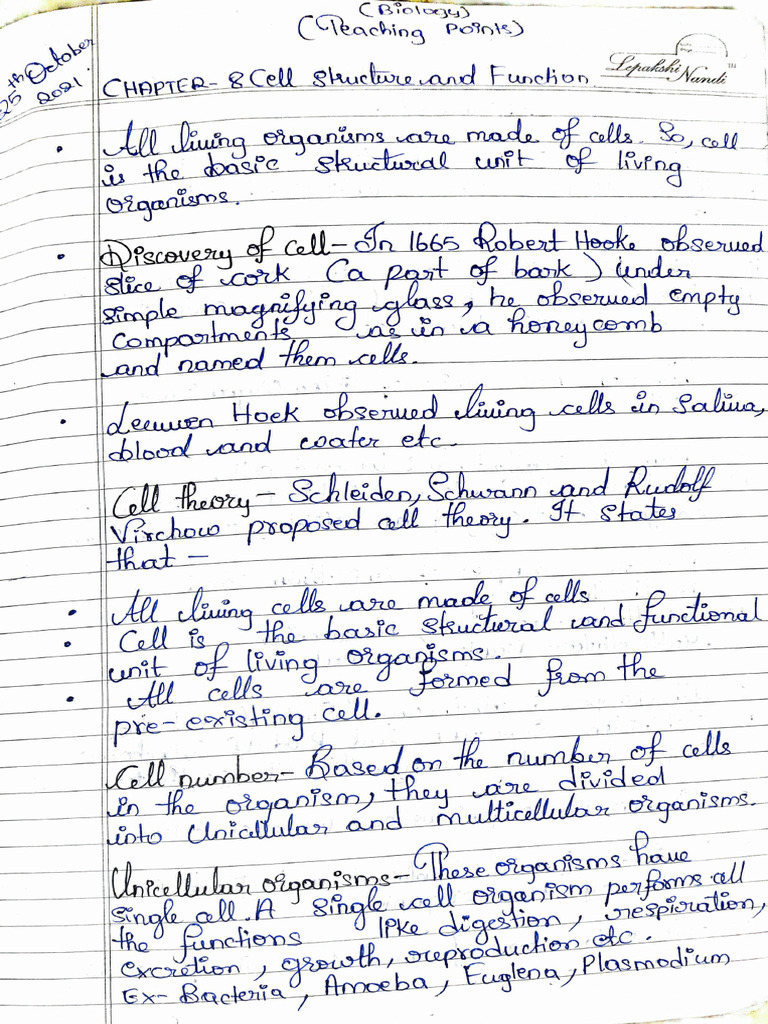 (Biology)
(Teaching Points)
25th October 2021.
Lepakshi Nandi™
CHAPTER- 8 Cell Structure and Function
• All living organisms are made of cells. So, cell
is the basic structural unit of living
organisms.
• Discovery of cell- In 1665 Robert Hooke observed
slice of cork (a part of bark) under
simple magnifying glass, he observed empty
compartments as in a honeycomb
and named them cells.
• Leeuwen Hoek observed living cells in Saliva,
blood and coater etc.
Cell theory- Schleiden, Schwann and Rudolf
Virchow proposed cell theory. It States
that -
• All living cells are made of cells
• Cell is the basic structural and functional
unit of living organisms.
• All cells are formed from the
pre-existing cell.
Cell number- Based on the number of cells
in the organism, they are divided
into Unicellular and multicellular organisms.
Unicellular organisms- These organisms have
single cell. A single cell organism performs all
the functions like digestion, respiration,
excretion, growth, reproduction etc.
Ex- Bacteria, Amoeba, Euglena, Plasmodium